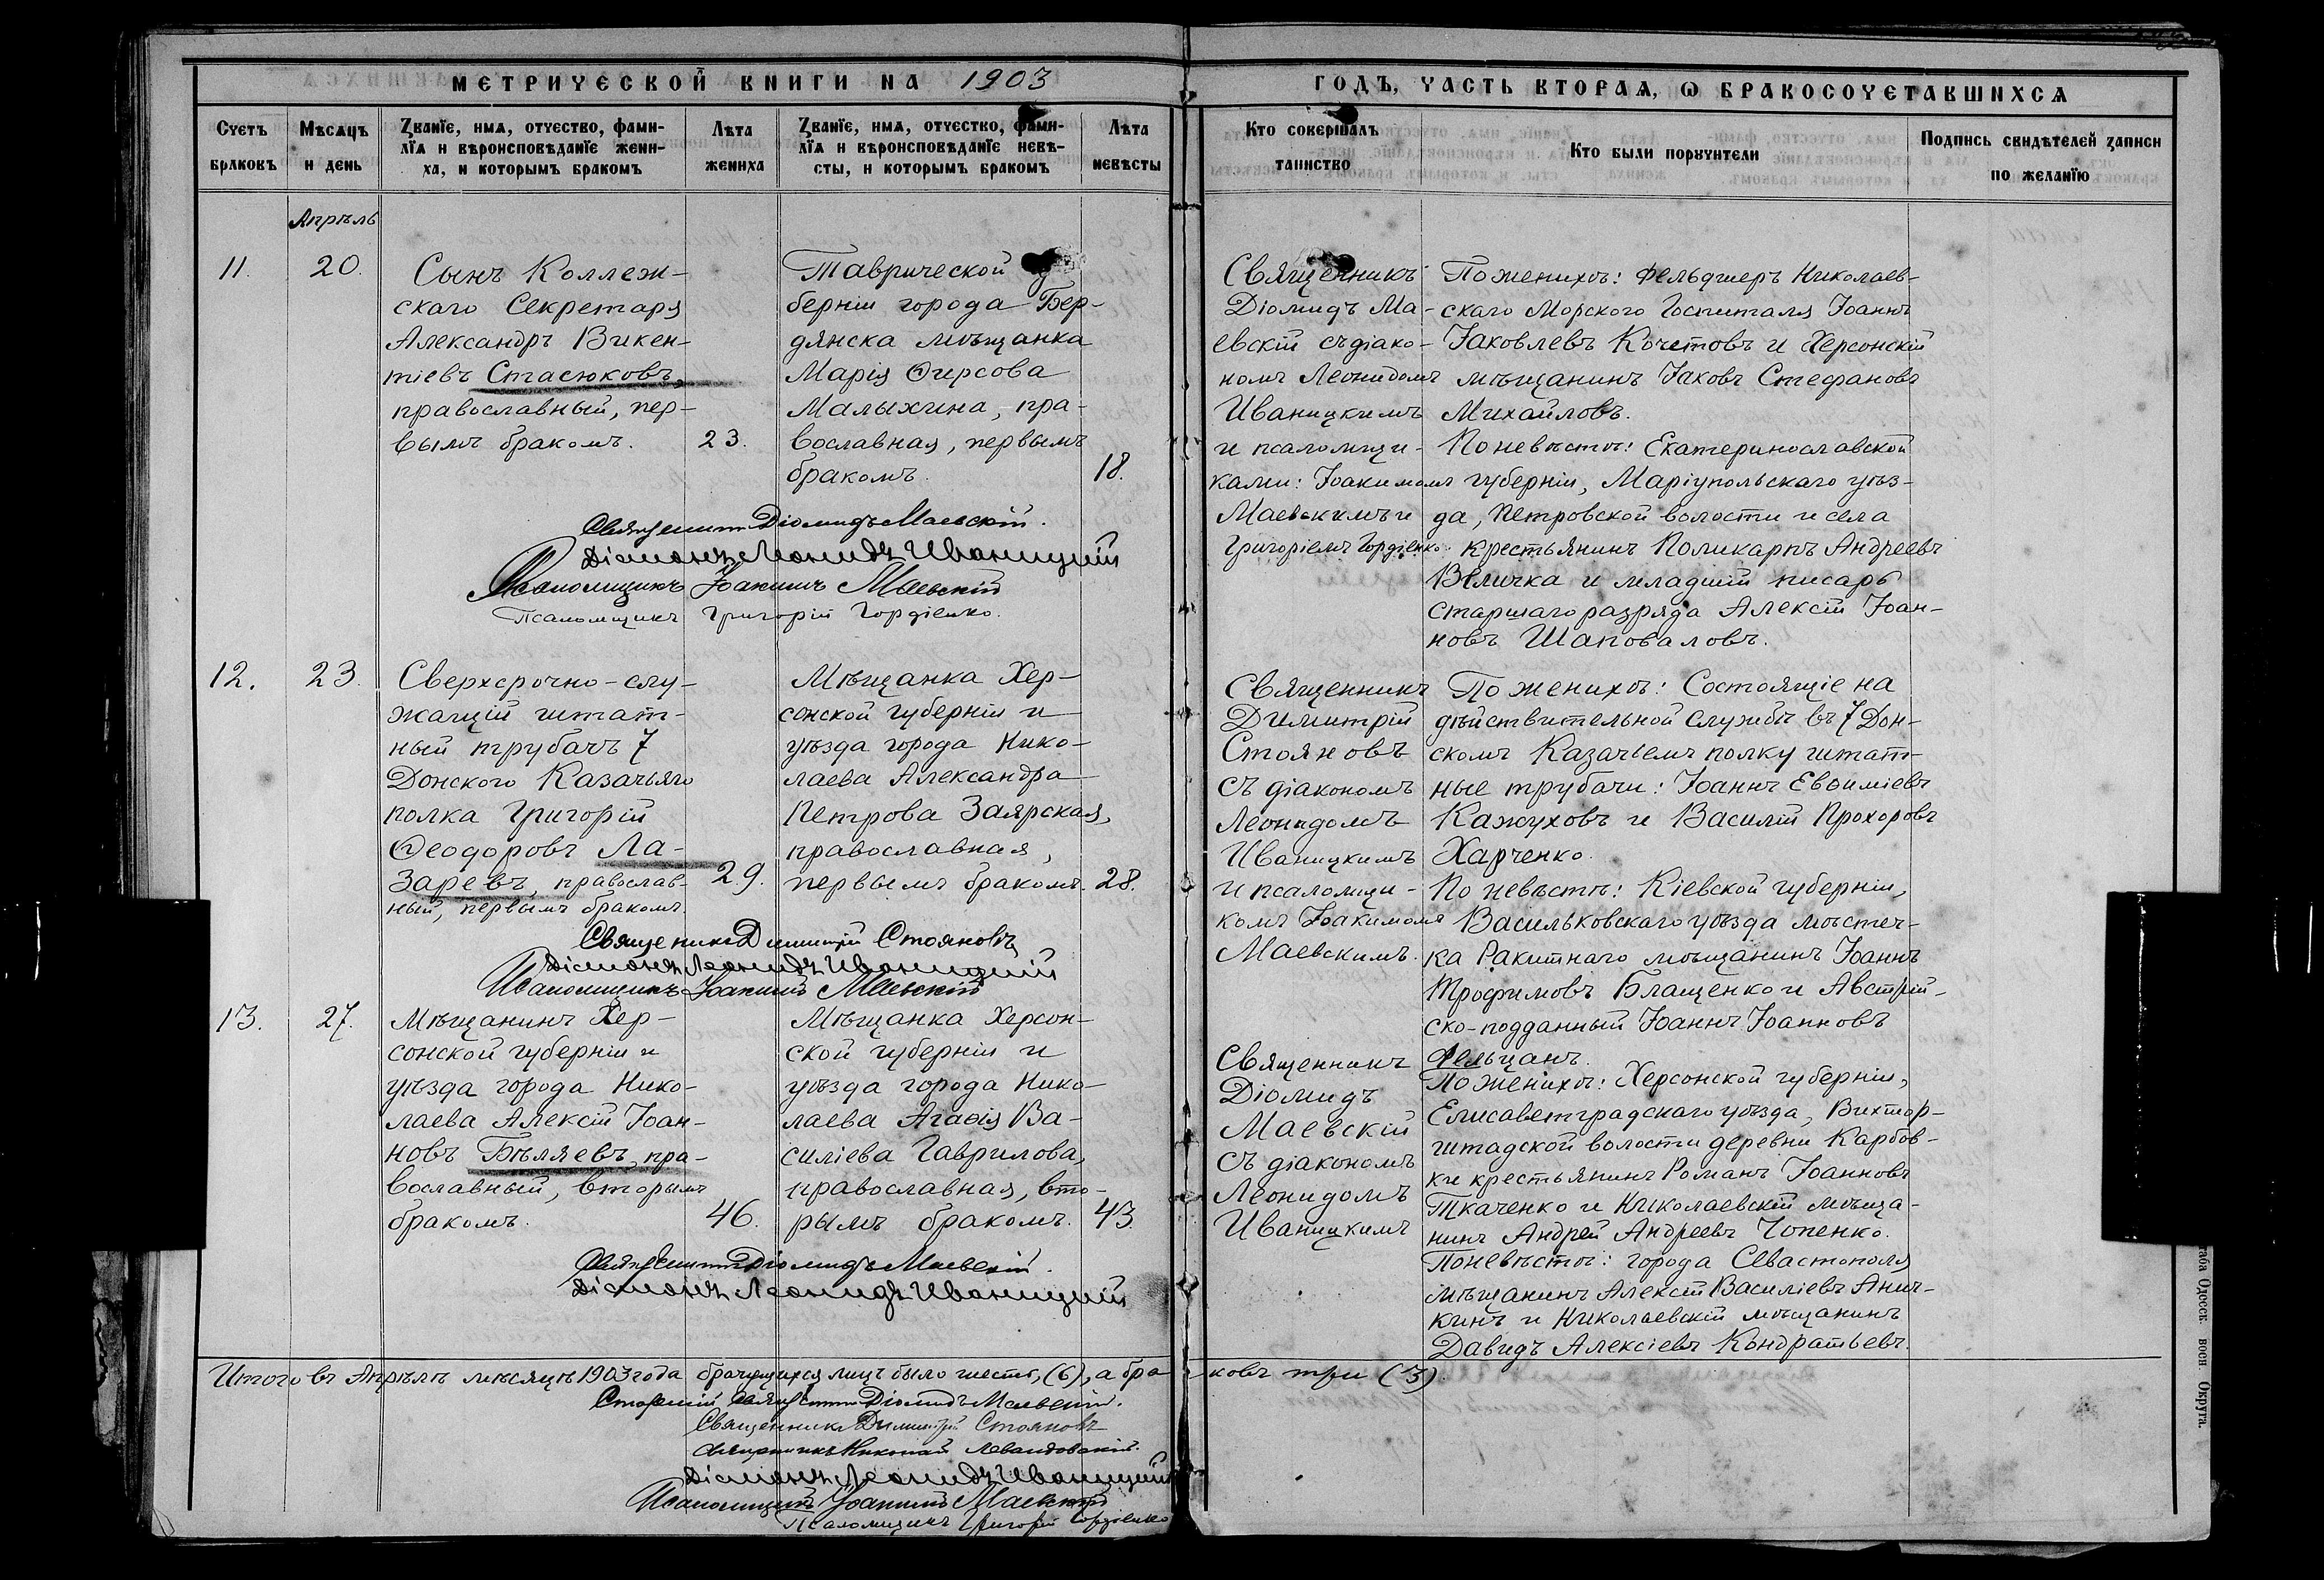 МЕТРИЧЕСКОЙ КНИГИ НА 1903
ГОДЪ, ЧАСТЬ ВТОРАѦ, Ѡ БРАКОСОЧЕТАВШИХСѦ
Счетъ браковъ
Мѣсѧцъ и день
Званїе, имѧ, отчество, фами-
лїѧ и вѣроисповѣданїе жени-
ха, и которымъ бракомъ
Лѣта жениха
Званїе, имѧ, отчество, фами-
лїѧ и вѣроисповѣданїе невѣ-
сты, и которымъ бракомъ
Лѣта невѣсты
Кто совершалъ таинство
Кто были поручители
Подпись свидѣтелей записи
по желанїю
Апрѣль
11.
20.
Сынъ Коллеж-
скаго Секретаря
Александръ Викен-
тіевъ Стасюковъ,
православный, пер-
вымъ бракомъ.
23.
Таврической гу-
берніи города Бер-
дянска мѣщанка
Марія Ѳирсова
Малыхина, пра-
вославная, первымъ
бракомъ.
18.
Священникъ
Діомидъ Ма-
евскій съ діако-
номъ Леонидомъ
Иваницкимъ
и псаломщи-
ками: Іоакимомъ
Маевскимъ и
Григоріемъ Гордіенко.
По женихѣ: Фельдшеръ Николаев-
скаго Морского Госпиталя Іоаннъ
Іаковлевъ Кочетовъ и Херсонскій
мѣщанинъ Іаковъ Стефановъ
Михайловъ.
По невѣстѣ: Екатеринославской
губерніи, Маріупольскаго уѣз-
да, Петровской волости и села
крестьянинъ Поликарпъ Андреевъ
Величка и младшій писарь
старшаго разряда Алексій Іоан-
новъ Шаповаловъ.
Священникъ Діомидъ Маевскій.
Діаконъ Леонидъ Иваницкій
Псаломщикъ Іоакимъ Маевскій
Псаломщикъ Григорій Гордіенко.
12.
23.
Сверхсрочно-слу-
жащій штат-
ный трубачъ 7
Донского Казачьяго
полка Григорій
Ѳеодоровъ Ла-
заревъ, православ-
ный, первымъ бракомъ.
29.
Мѣщанка Хер-
сонской губерніи и
уѣзда города Нико-
лаева Александра
Петрова Заярская,
православная,
первымъ бракомъ.
28.
Священникъ
Димитрій
Стояновъ
съ діакономъ
Леонидомъ
Иваницкимъ
и псаломщи-
комъ Іоакимомъ
Маевскимъ.
По женихѣ: Состоящіе на
дѣйствительной службѣ въ 7 Дон-
скомъ Казачьемъ полку штат-
ные трубачи: Іоаннъ Евѳиміевъ
Кажуховъ и Василій Прохоровъ
Харченко.
По невѣстѣ: Кіевской губерніи,
Васильковскаго уѣзда мѣстеч-
ка Ракитнаго мѣщанинъ Іоаннъ
Трофимовъ Блащенко и Австрій-
ско-подданный Іоаннъ Іоанновъ
Фельцанъ.
Священникъ Димитрій Стояновъ
Діаконъ Леонидъ Иваницкій
Псаломщикъ Іоакимъ Маевскій
13.
27.
Мѣщанинъ Хер-
сонской губерніи и
уѣзда города Нико-
лаева Алексій Іоан-
новъ Бѣляевъ, пра-
вославный, вторымъ
бракомъ.
46.
Мѣщанка Херсон-
ской губерніи и
уѣзда города Нико-
лаева Агаѳія Ва-
силіева Гаврилова,
православная, вто-
рымъ бракомъ.
43.
Священникъ
Діомидъ
Маевскій
съ діакономъ
Леонидомъ
Иваницкимъ
По женихѣ: Херсонской губерніи,
Елисаветградскаго уѣзда, Виктор-
штадской волости деревни Карбов-
ки крестьянинъ Романъ Іоанновъ
Ткаченко и Николаевскій мѣща-
нинъ Андрей Андреевъ Чопенко.
По невѣстѣ: города Севастополя
мѣщанинъ Алексій Василіевъ Анич-
кинъ и Николаевскій мѣщанинъ
Давидъ Алексіевъ Кондратьевъ.
Священникъ Діомидъ Маевскій.
Діаконъ Леонидъ Иваницкій
Итого въ Апрѣлѣ мѣсяцѣ 1903 года брачущихся лицъ было шесть, (6), а бра-
ковъ три (3)
Священникъ Діомидъ Маевскій.
Священникъ Димитрій Стояновъ
Священникъ Николай Левандовскій.
Діаконъ Леонидъ Иваницкій
Псаломщикъ Іоакимъ Маевскій
Псаломщикъ Григорій Гордіенко
Одесск. воен Округа.